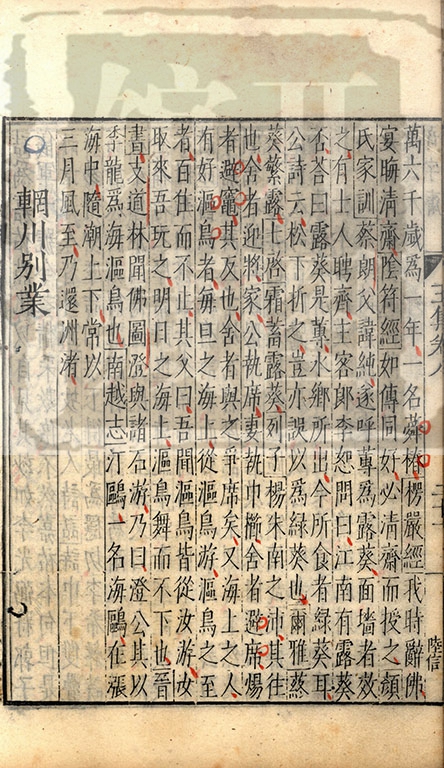 萬六千歲爲一年一名蕣楞嚴經我時辭佛
宴晦清齋陰符經如傳同好必清齋而授之顔
氏家訓蔡朗父諱純遂呼蓴爲露葵面墻者效
之有士人聘齊主客郎李恕問曰江南有露葵
否荅曰露葵是蓴水鄉所出今所食者綠葵耳
公詩云松下折之豈亦誤以爲綠葵也爾雅蔠
葵蘩露上啓霜蓄露葵列子楊朱南之沛其往
也舍者迎將家公執席妻執巾櫛舍者避席煬
者避竈其反也舍者與之爭席矣又海上之人
有好漚鳥者每旦之海上從漚鳥游漚鳥之至
者百住而不止其父曰吾聞漚鳥皆從汝游汝
取來吾玩之明日之海上漚鳥舞而不下也晉
書支道林聞佛圖澄與諸石游乃曰澄公其以
季龍爲海漚鳥也南越志江鷗一名海鷗在漲
海中隨潮上下常以
三月風至乃還洲渚
輞川别業
陸信